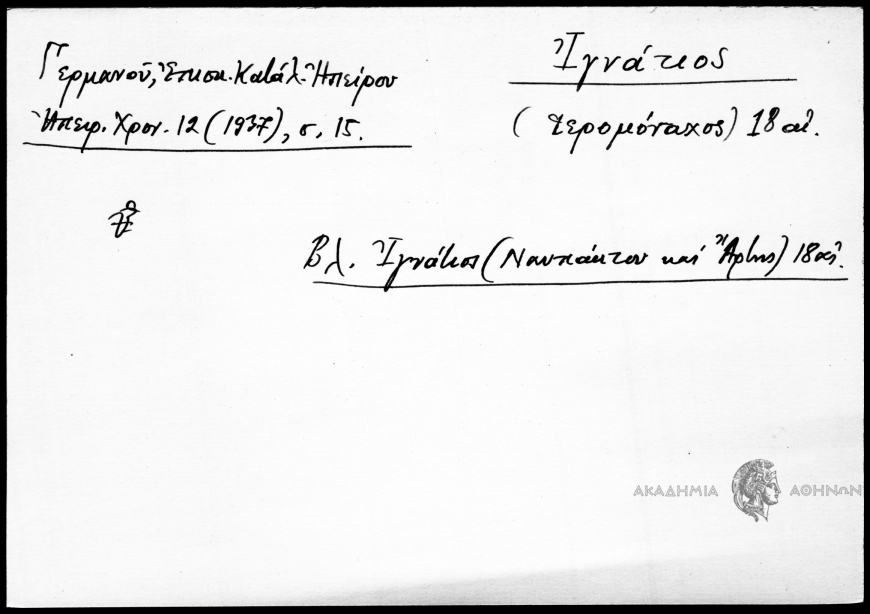 Γερμανοῦ, Ἐπισκ. Κατάλ. Ἠπείρου
Ἠπειρ. Χρον. 12 (1937), σ. 15.
Ἰγνάτιος
(ἱερομόναχος) 18 αἰ.
Βλ. Ἰγνάτιος (Ναυπάκτου καὶ Ἄρτης) 18 αἰ.
ΑΚΑΔΗΜΙΑ ΑΘΗΝΩΝ